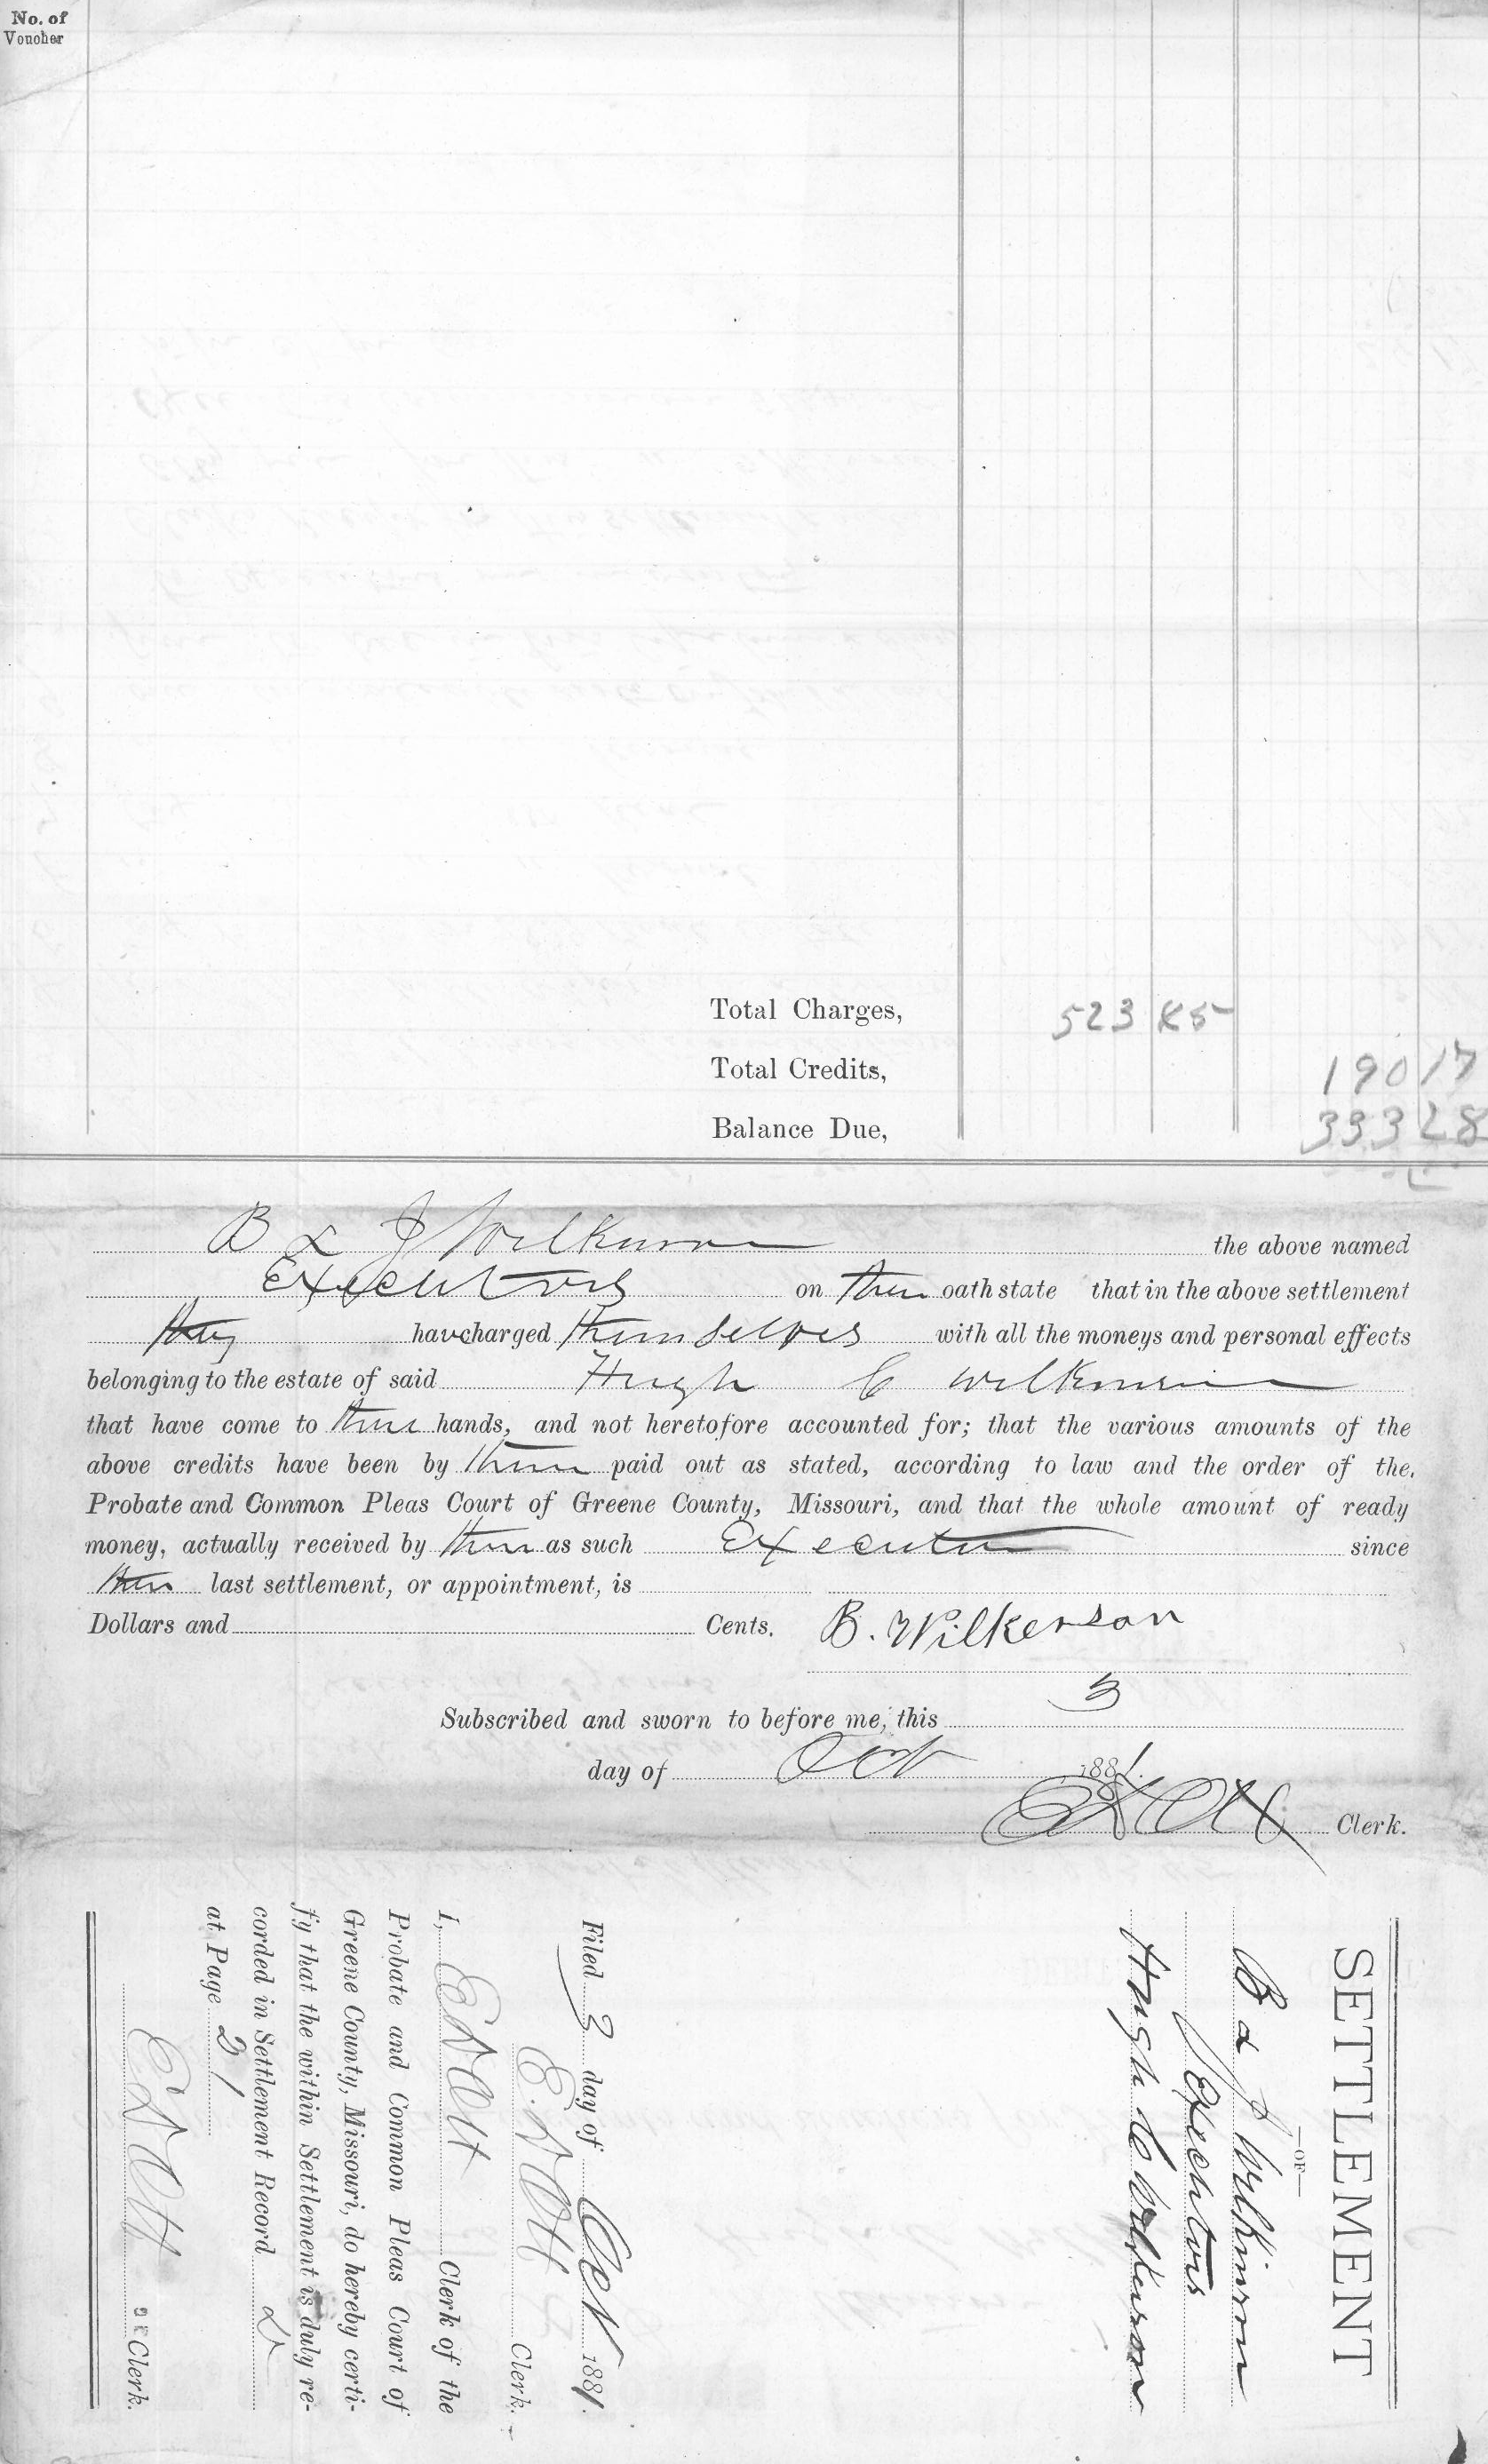 No. of
Voucher
Total Charges, 523 85
Total Credits, 190 17
Balance Due, 333 28
B & J Wilkerson the above named
Executors on their oath state that in the above settlement
they have charged themselves with all the moneys and personal effects
belonging to the estate of said Hugh C Wilkerson
that have come to their hands, and not heretofore accounted for; that the various amounts of the
above credits have been by them paid out as stated, according to law and the order of the
Probate and Common Pleas Court of Greene County, Missouri, and that the whole amount of ready
money, actually received by them as such Executors since
their last settlement, or appointment, is
Dollars and Cents. B. Wilkerson
Subscribed and sworn to before me, this 3
day of Oct 1881.
Clerk.
SETTLEMENT
—OF—
B & J Wilkerson
Executors
Hugh C Wilkerson
Filed 3 day of Oct 1881.
E. D. Ott Clerk.
I, E D Ott Clerk of the
Probate and Common Pleas Court of
Greene County, Missouri, do hereby certi-
fy that the within Settlement is duly re-
corded in Settlement Record
at Page 21
E D Ott Clerk.